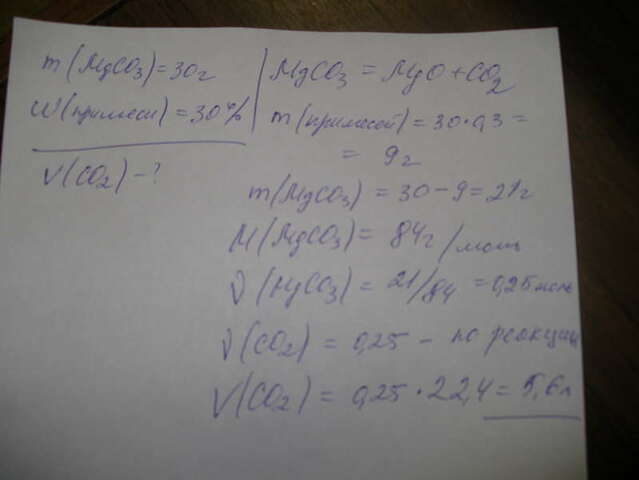 m(MgCO3)=30г
W(примеси)=30%
V(CO2)-?
MgCO3 = MgO+CO2
m(примесей)=30·0,3=
= 9г
m(MgCO3) = 30-9=21г
M(MgCO3) = 84г/моль
ν(MgCO3) = 21/84 =0,25моль
ν(CO2) = 0,25 - по реакции
V(CO2) = 0,25·22,4=5,6л